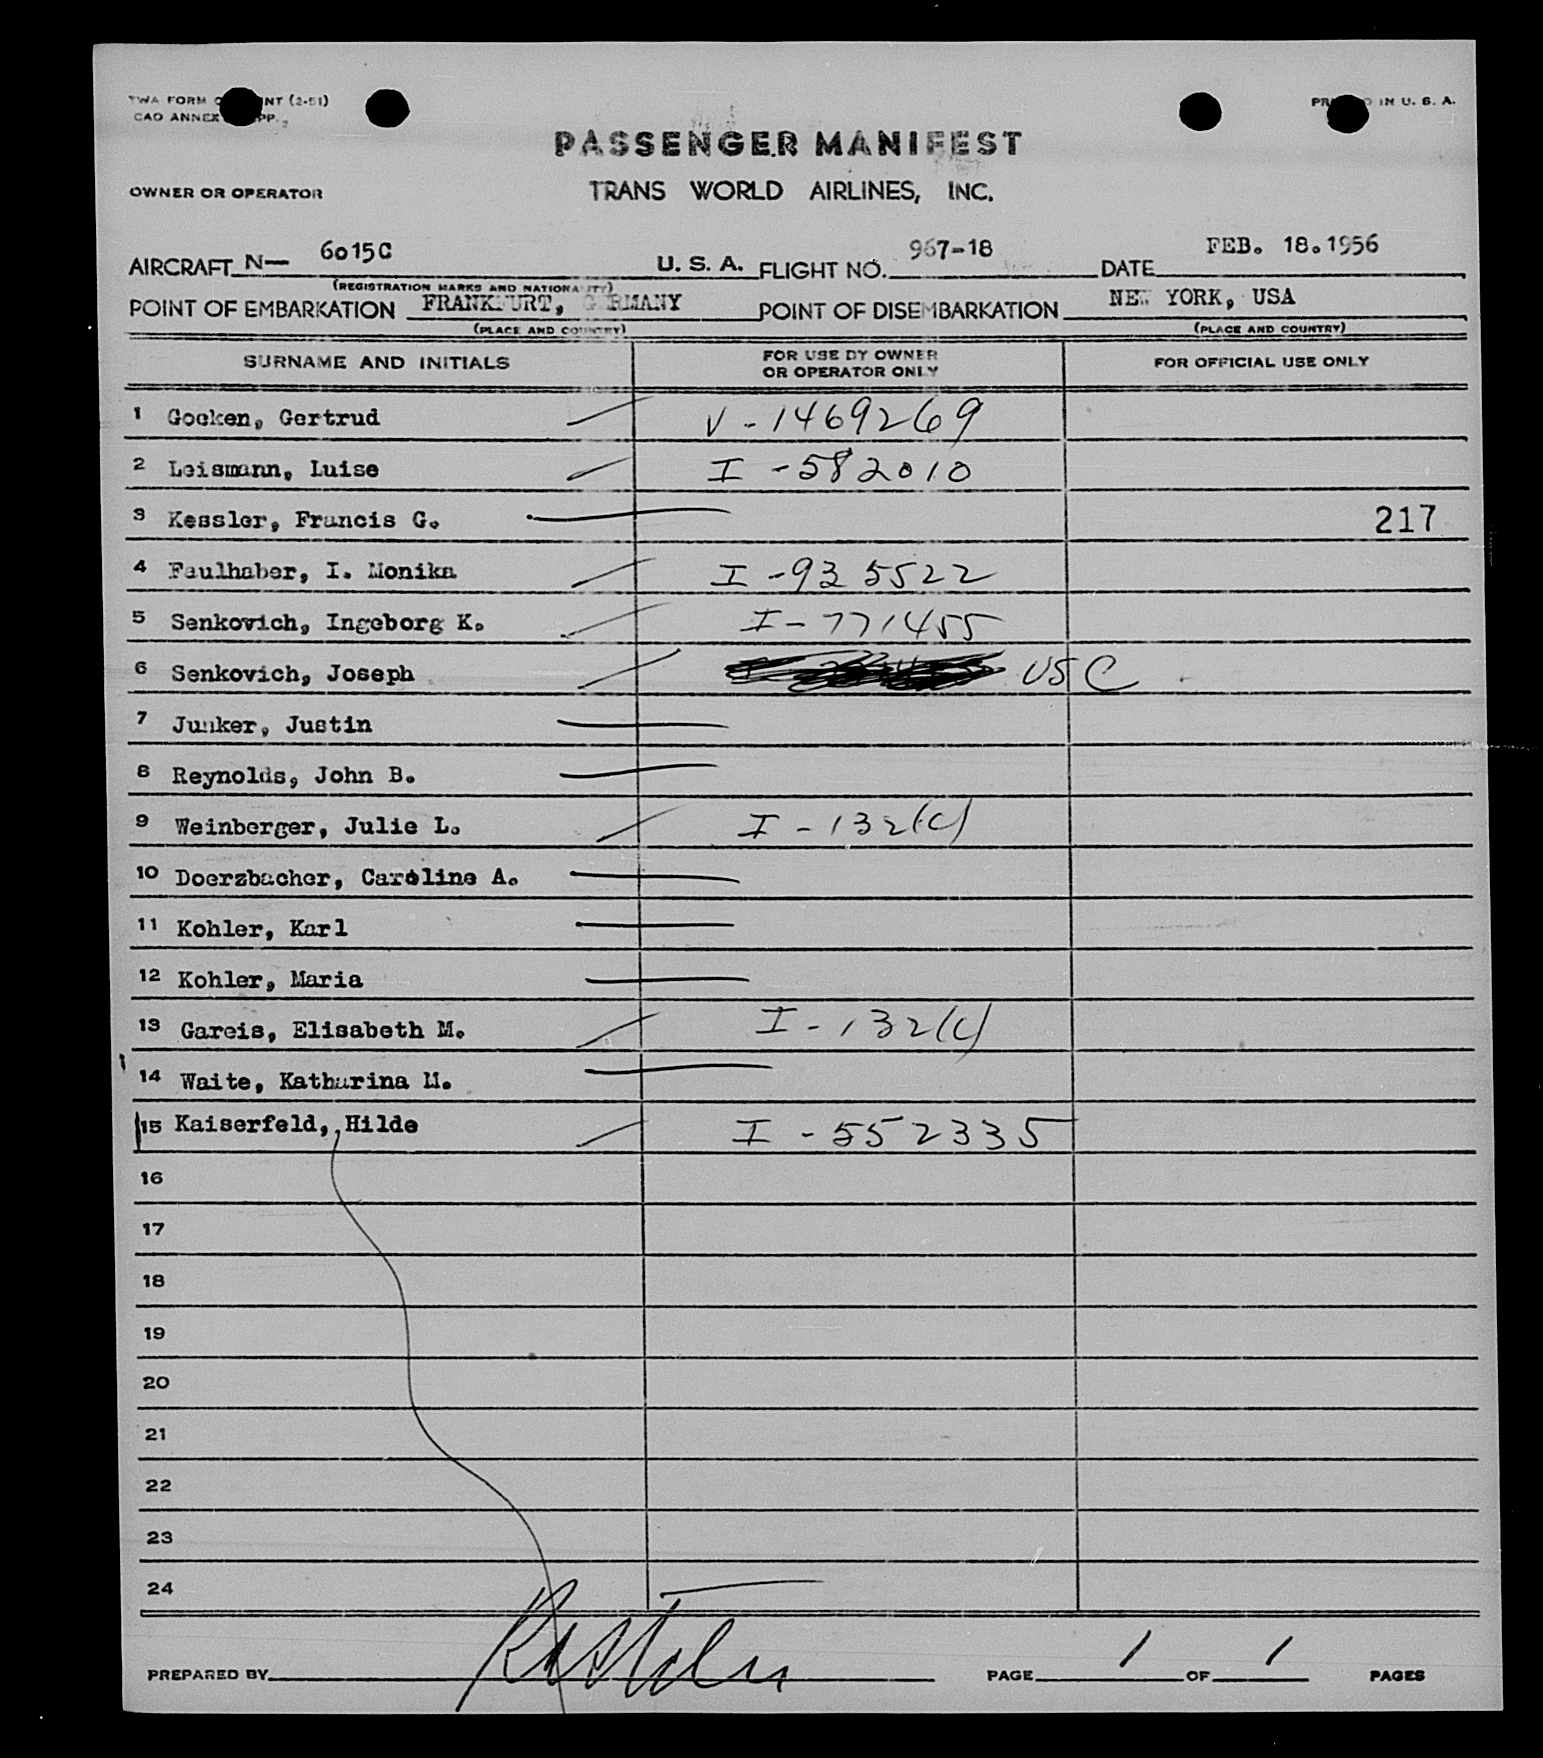 TWA FORM NT (2-51)
CAO ANNEX PP.
PR IN U. S. A.
PASSENGER MANIFEST
OWNER OR OPERATOR TRANS WORLD AIRLINES, INC.
AIRCRAFT N— 6015C U. S. A. FLIGHT NO. 967-18 DATE FEB. 18.1956
(REGISTRATION MARKS AND NATIONALITY)
POINT OF EMBARKATION FRANKFURT, GERMANY POINT OF DISEMBARKATION NEW YORK, USA
(PLACE AND COUNTRY) (PLACE AND COUNTRY)
SURNAME AND INITIALS FOR USE BY OWNER OR OPERATOR ONLY FOR OFFICIAL USE ONLY
1 Gocken, Gertrud V - 1469269
2 Leismann, Luise I - 582010
3 Kessler, Francis G. 217
4 Faulhaber, I. Monika I - 935522
5 Senkovich, Ingeborg K. I - 771455
6 Senkovich, Joseph USC
7 Junker, Justin
8 Reynolds, John B.
9 Weinberger, Julie L. I - 132(c)
10 Doerzbacher, Caroline A.
11 Kohler, Karl
12 Kohler, Maria
13 Gareis, Elisabeth M. I - 132(c)
14 Waite, Katharina M.
15 Kaiserfeld, Hilde I - 552335
16
17
18
19
20
21
22
23
24
PREPARED BY PAGE 1 OF 1 PAGES